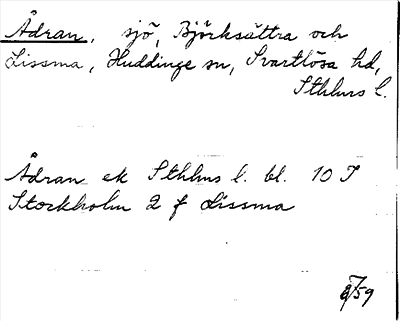 Ådran, sjö, Björksättra och
Lissma, Huddinge sn, Svartlösa hd,
Sthlms l.
Ådran ek Sthlms l. bl. 10 I
Stockholm 2 f Lissma